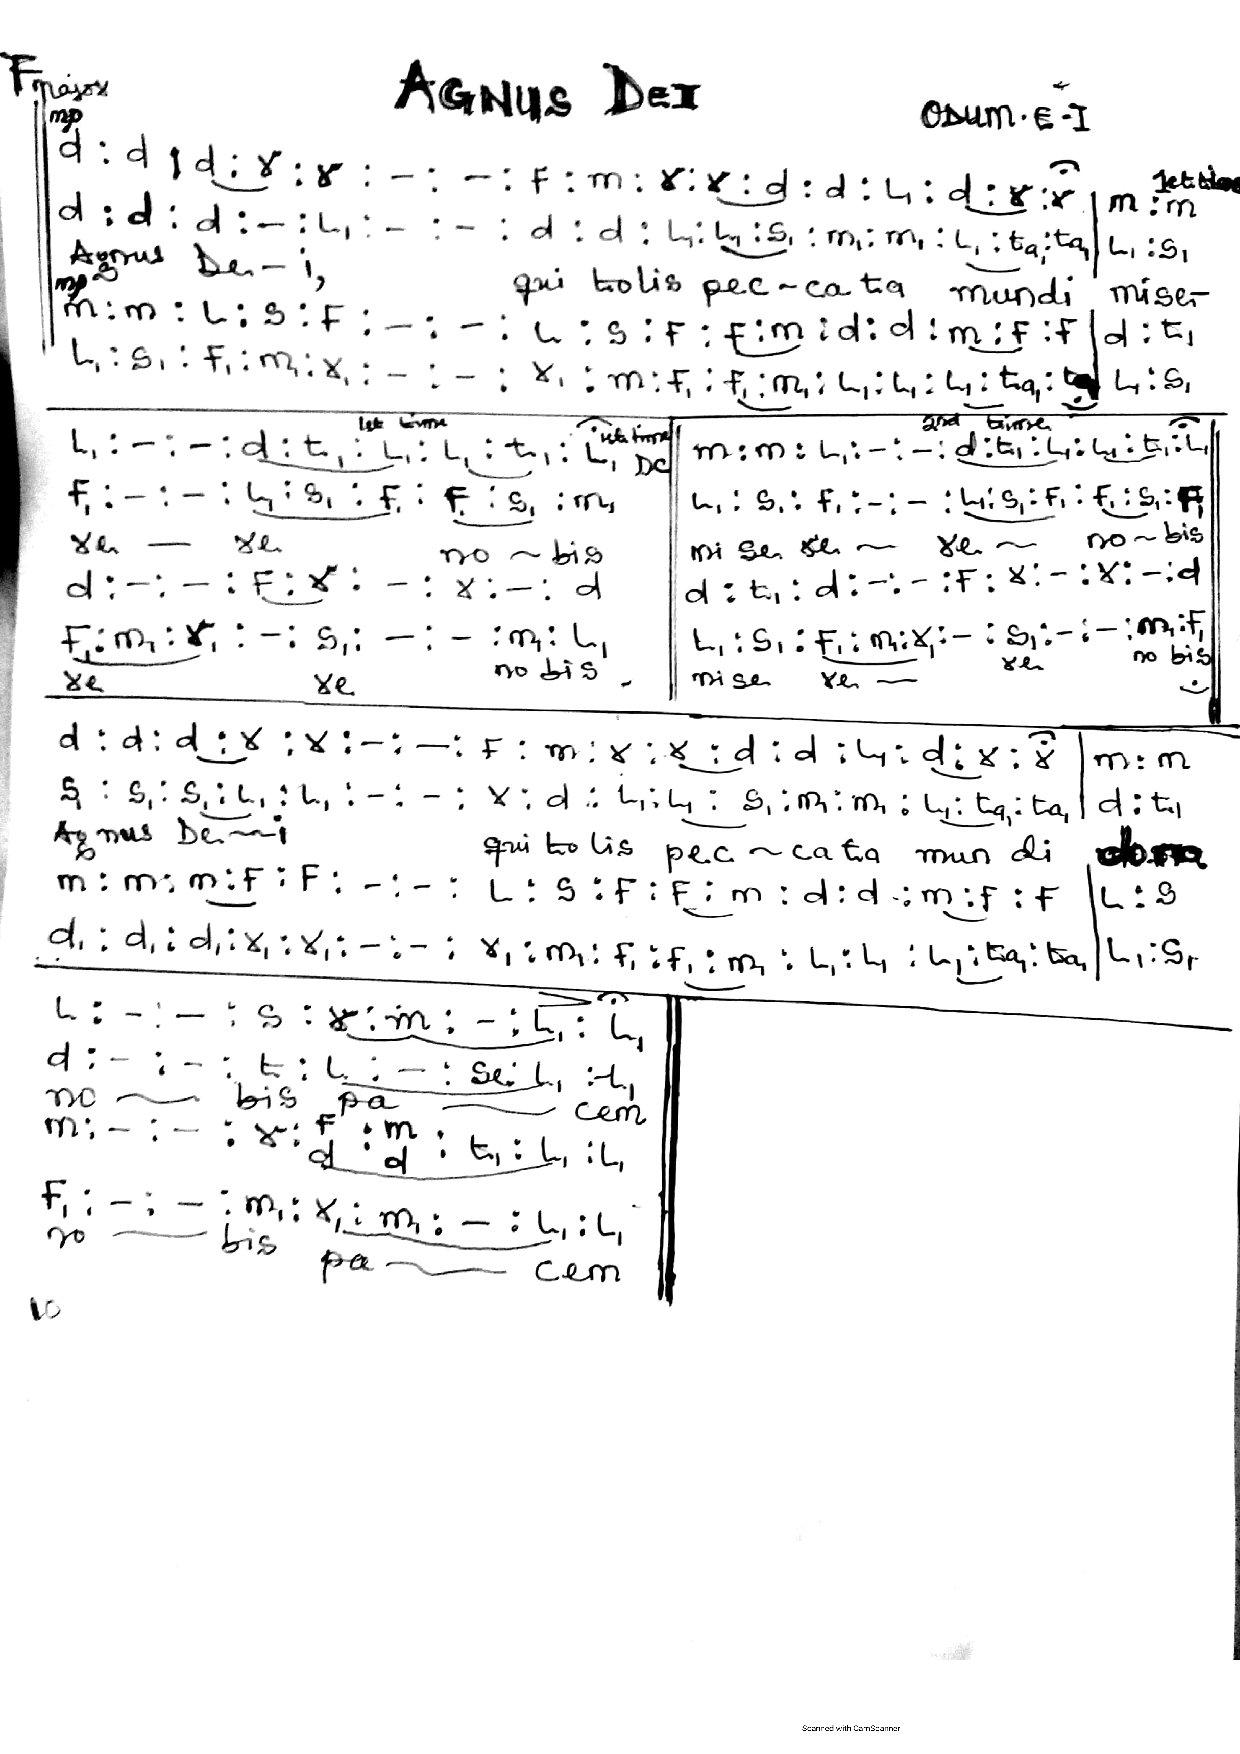 F major
AGNUS DEI
ODUM.E-I
mp
d : d : d : r : r : - : - : f : m : r : r : d : d : L₁ : d : r : r | m : m
d : d : d : - : L₁ : - : - : d : d : L₁ : L₁ : S₁ : m₁ : m₁ : L₁ : ta₁ : ta₁ | L₁ : S₁
Agnus De-i, qui tolis pec~cata mundi miser-
mp
m : m : L : S : F : - : - : L : S : F : f : m : d : d : m : f : f | d : t₁
L₁ : S₁ : F₁ : m₁ : r₁ : - : - : r₁ : m : F₁ : f₁ : m₁ : L₁ : L₁ : L₁ : ta₁ : | L₁ : S₁
1st time
L₁ : - : - : d : t₁ : L₁ : L₁ : t₁ : L₁ DC
F₁ : - : - : L₁ : S₁ : F₁ : F₁ : S₁ : m₁
re — re no ~ bis
d : - : - : F : r : - : r : - : d
F₁ : m₁ : r₁ : - : S₁ : - : - : m₁ : L₁
re re no bis
2nd time
m : m : L₁ : - : - : d : t₁ : L₁ : L₁ : t₁ : L₁
L₁ : S₁ : F₁ : - : - : L₁ : S₁ : F₁ : F₁ : S₁ : F₁
mi se re ~ re ~ no ~ bis
d : t₁ : d : - : - : F : r : - : r : - : d
L₁ : S₁ : F₁ : m₁ : r₁ : - : S₁ : - : - : m₁ : F₁
mi se re — re no bis
d : d : d : r : r : - : - : F : m : r : r : d : d : L₁ : d : r : r | m : m
S₁ : S₁ : S₁ : L₁ : L₁ : - : - : r : d : L₁ : L₁ : S₁ : m₁ : m₁ : L₁ : ta₁ : ta₁ | d : t₁
Agnus De-i qui tolis pec~cata mun di dona
m : m : m : F : F : - : - : L : S : F : F : m : d : d : m : f : f | L : S
d₁ : d₁ : d₁ : r₁ : r₁ : - : - : r₁ : m₁ : F₁ : F₁ : m₁ : L₁ : L₁ : L₁ : ta₁ : ta₁ | L₁ : S₁
L : - : - : S : r : m : - : L₁ : L₁
d : - : - : t : L : - : se : L₁ : L₁
no — bis pa — cem
m : - : - : r : F : m : t₁ : L₁ : L₁
d d
F₁ : - : - : m₁ : r₁ : m₁ : - : L₁ : L₁
no — bis
pa — cem
10
Scanned with CamScanner